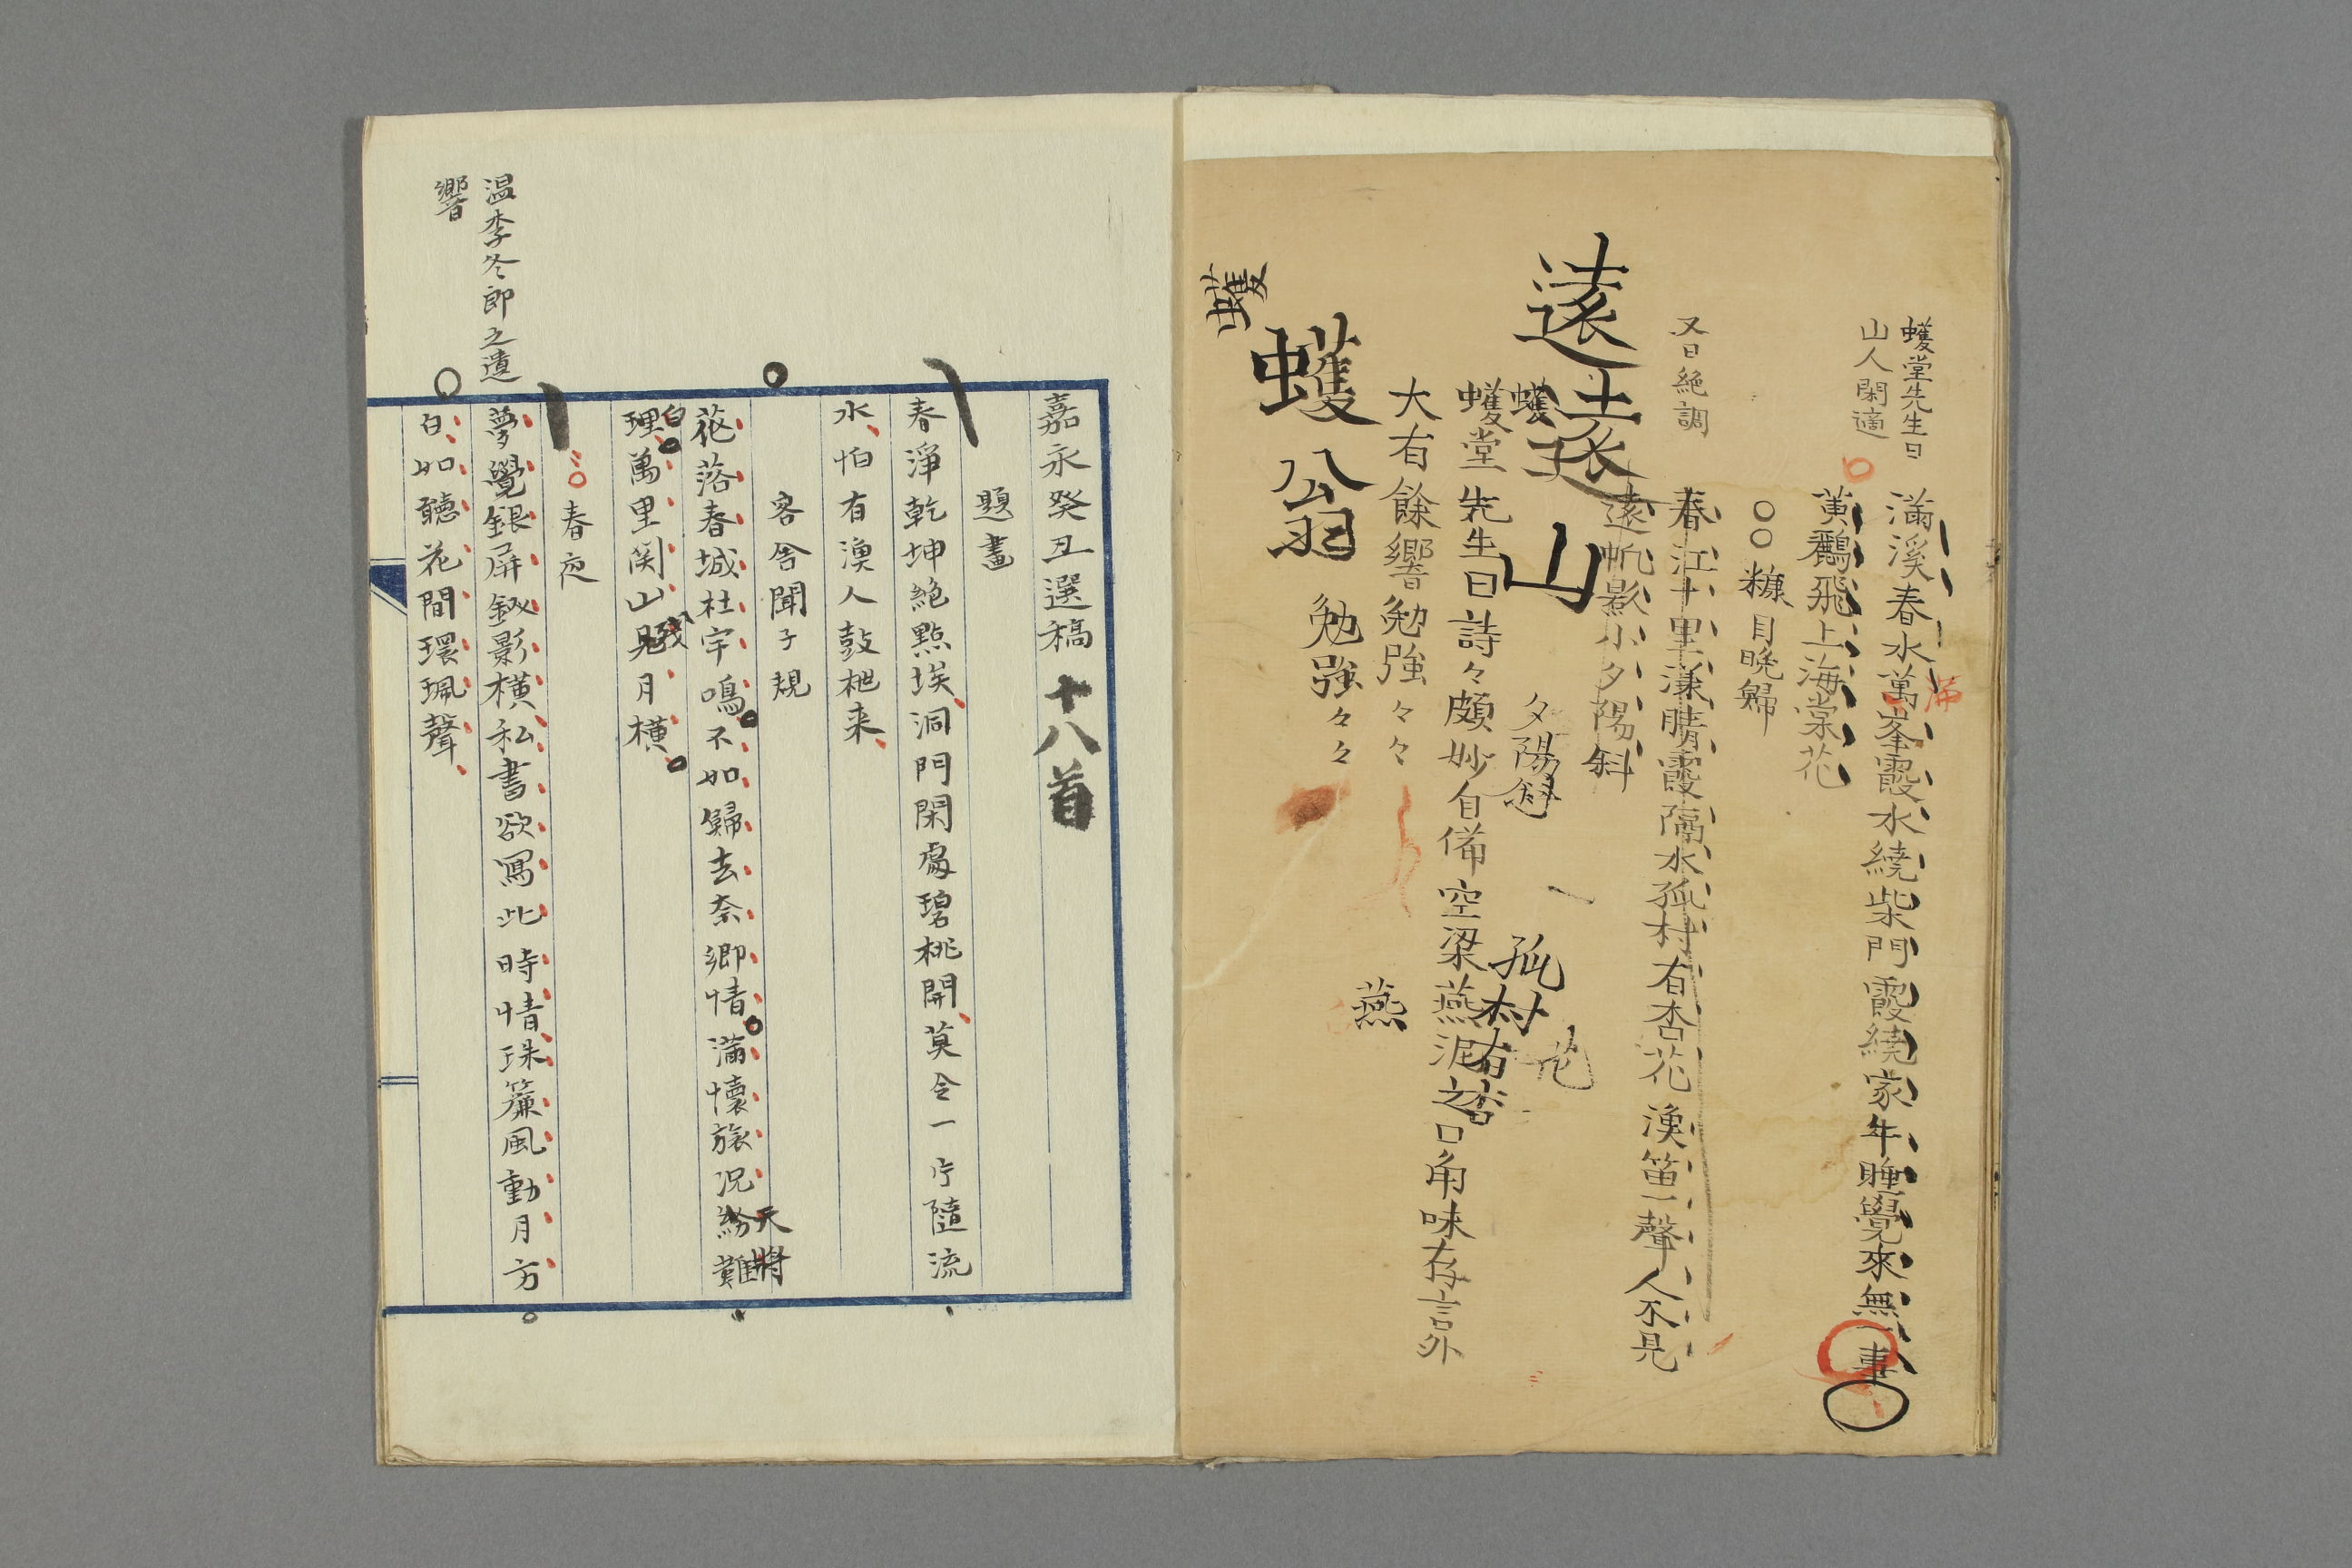 蠖堂先生曰
山人閑適
滿溪春水萬峯霞水繞柴門霞繞家午睡覺來無一事
滿
黃鸝飛上海棠花
目晩歸
又曰絶調
春江十里漾晴霞隔水孤村有杏花漁笛一聲人不見
遠帆影小夕陽斜
遠遠山
蠖
夕陽斜
一
孤村有杏
花
蠖堂先生曰詩々頗妙自備空梁燕泥之口角味存言外
大有餘響勉強々々
燕
蠖翁勉強々々
蠖
嘉永癸丑選稿十八首
題畫
春淨乾坤絶點埃洞門閑處碧桃開莫令一片隨流
水怕有漁人鼓枻来
客舎聞子規
花落春城杜宇鳴不如歸去奈卿情滿懷旅况紛難
天將
理萬里関山月橫
白
春夜
夢覺銀屏釵影橫私書欲寫此時情珠簾風動月方
白如聽花間環珮聲
温李冬郎之遺
響